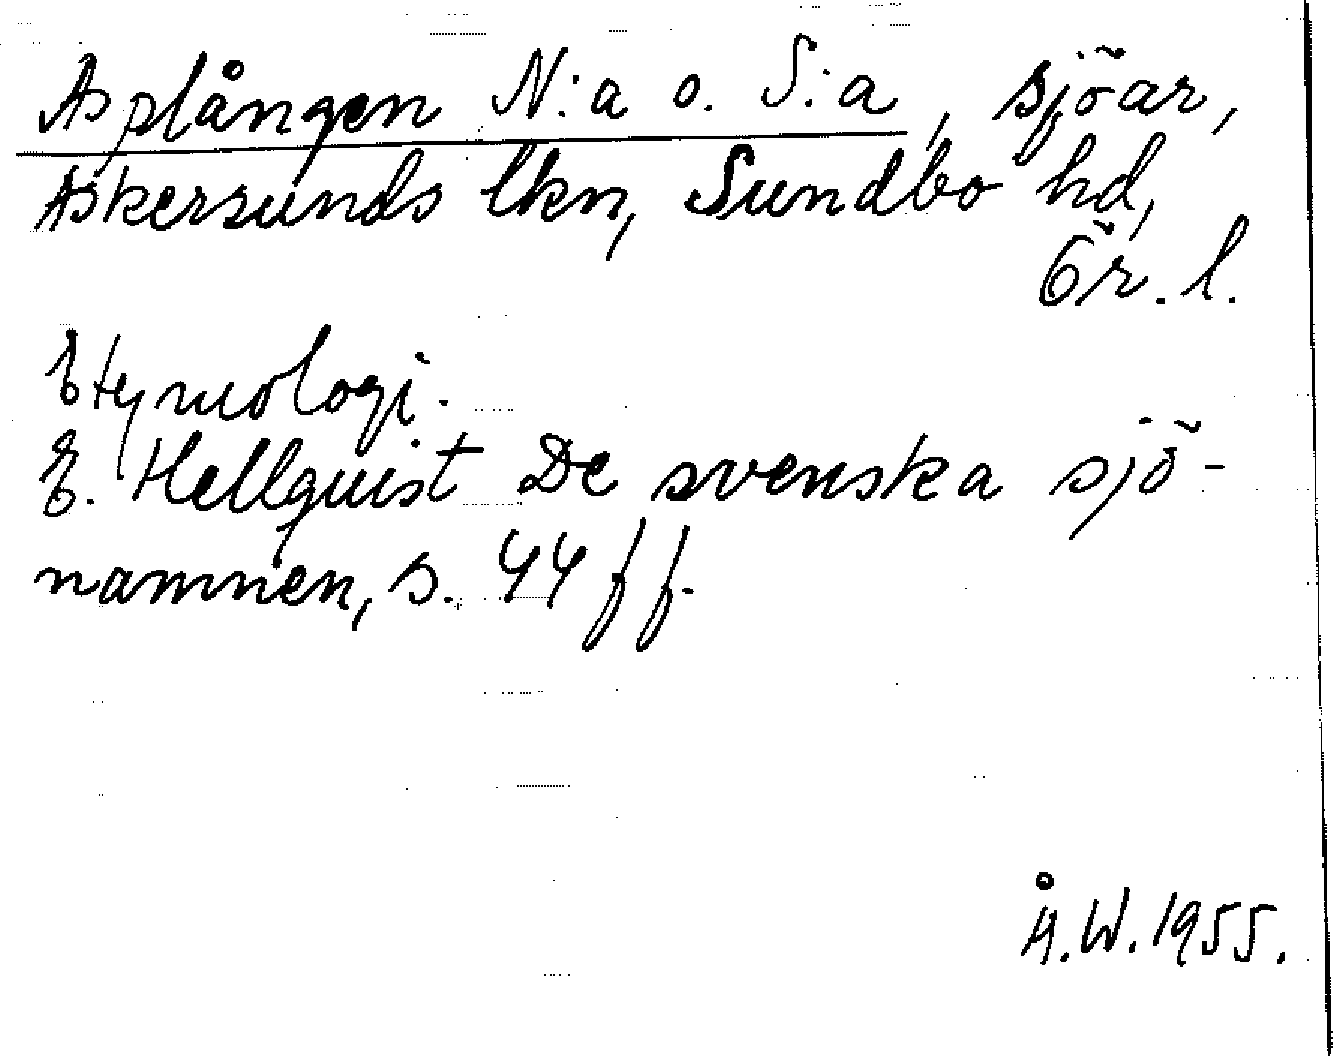 Asplången N:a o. S:a, sjöar,
Askersunds lkn, Sundbo hd,
Ör. l.
Etymologi.
E. Hellquist De svenska sjö-
namnen, s. 44 ff.
Å.W. 1955.